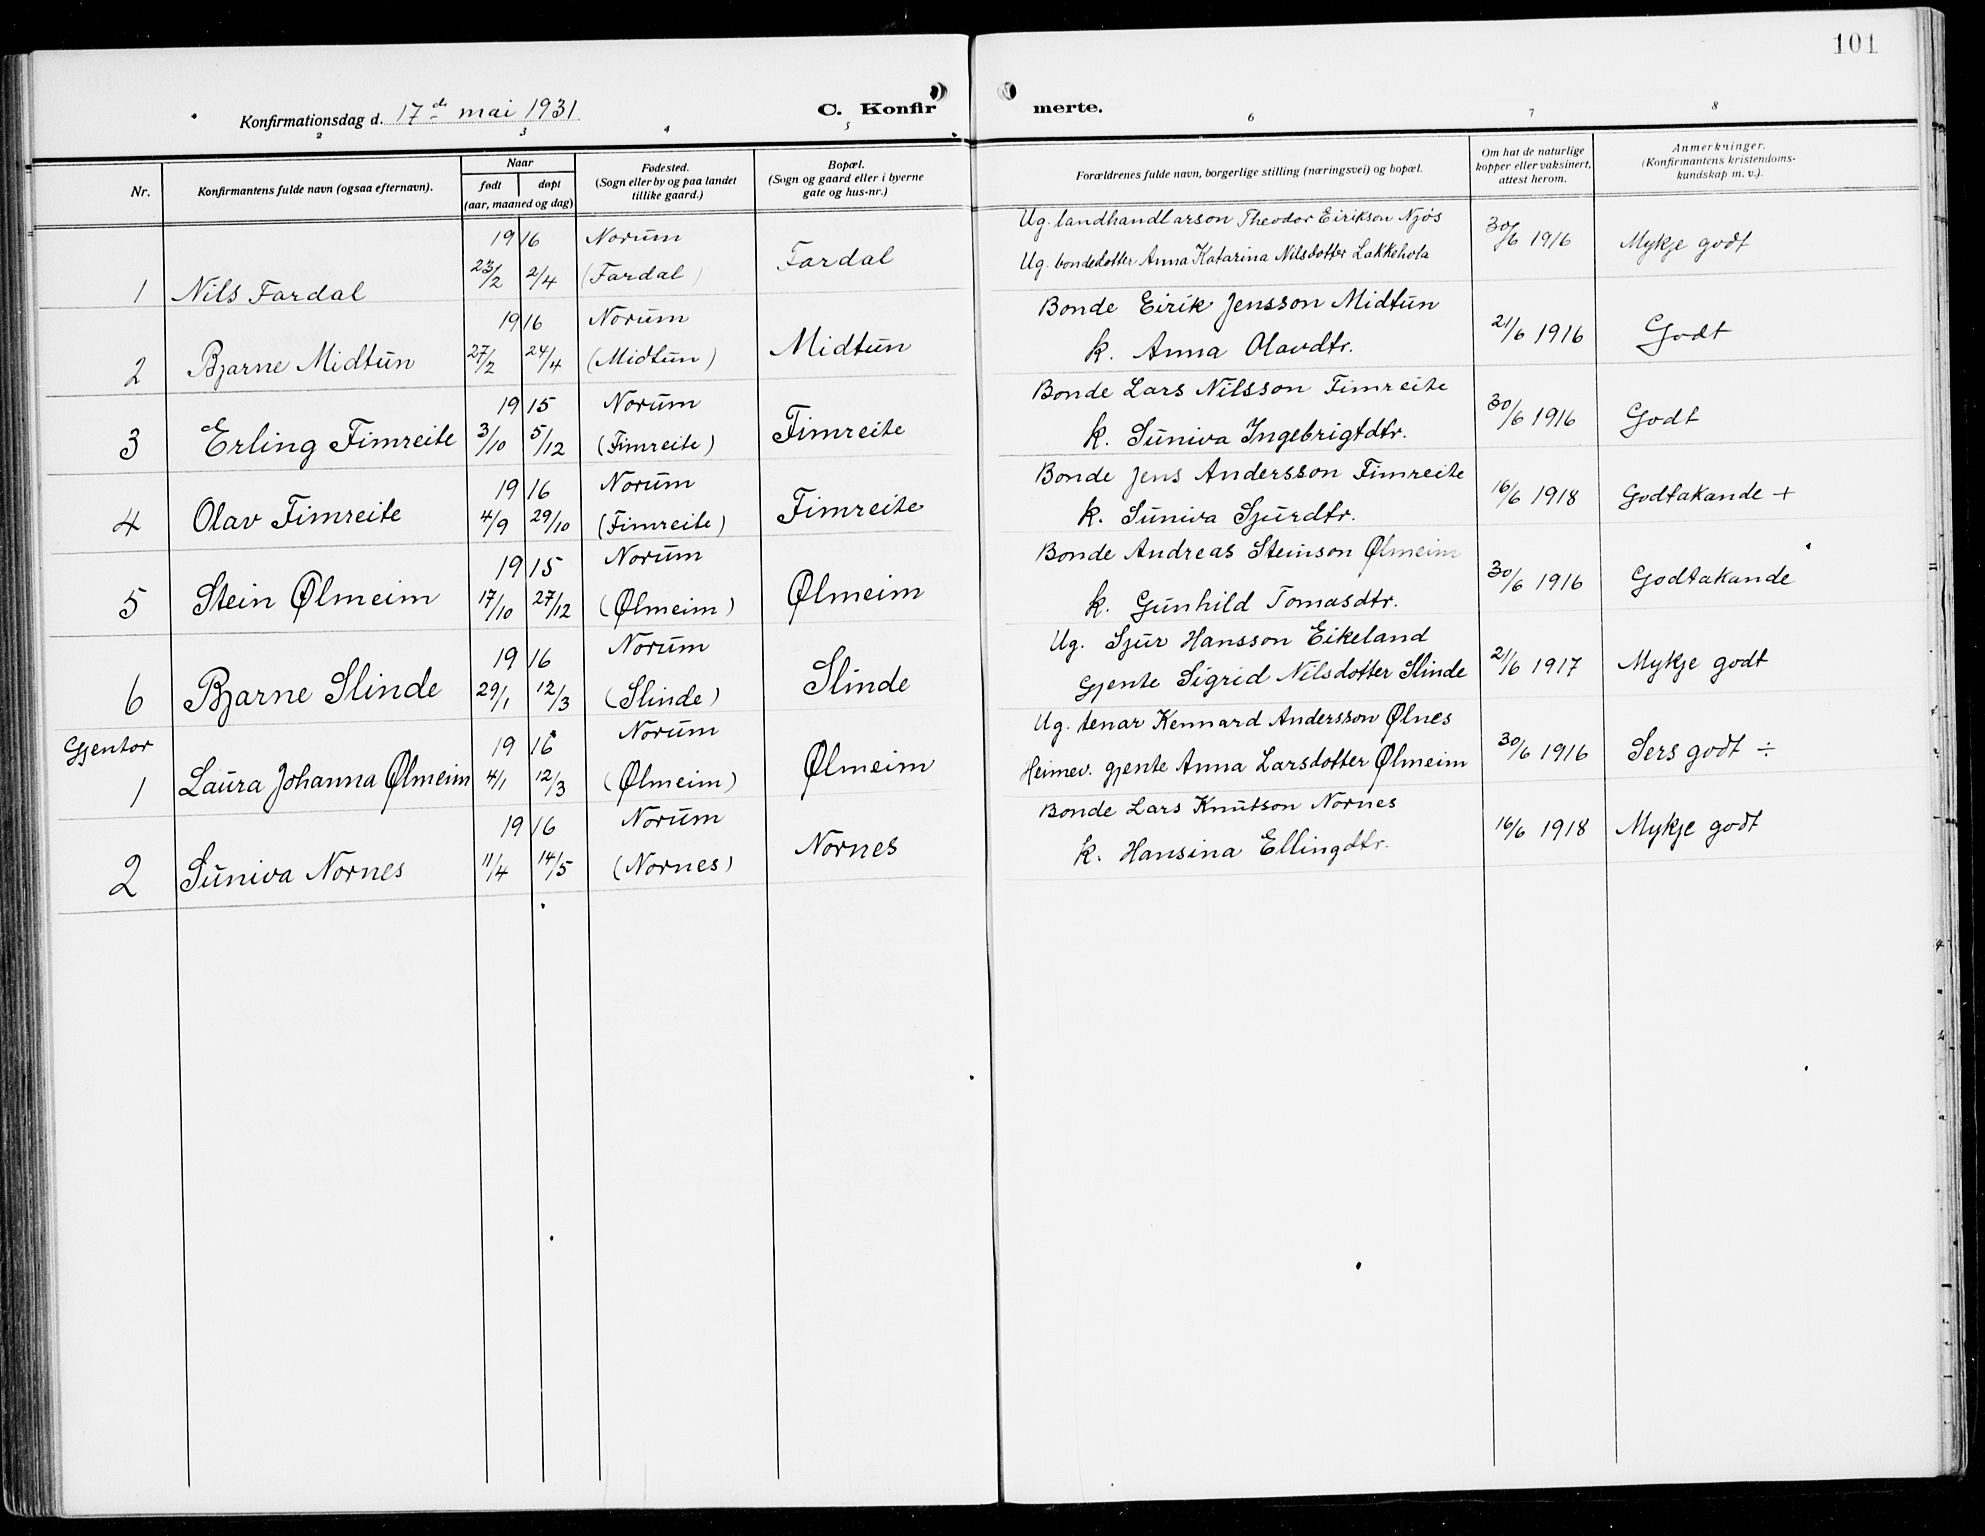 101
Konfirmationsdag d. 17de mai 1931
C. Konfir merte.
2 3 4 5 6 7 8
Nr.
Konfirmantens fulde navn (ogsaa efternavn).
Naar
født døpt
(aar, maaned og dag)
Fødested.
(Sogn eller by og paa landet
tillike gaard.)
Bopæl.
(Sogn og gaard eller i byerne
gate og hus-nr.)
Forældrenes fulde navn, borgerlige stilling (næringsvei) og bopæl.
Om hat de naturlige
kopper eller vaksinert,
attest herom.
Anmerkninger.
(Konfirmantens kristendoms-
kundskap m. v.).
19 16 Norum
1 Nils Fardal 23/2 2/4 (Fardal) Fardal
Ug. landhandlarson Theodor Eirikson Njøs
Ug. bondedotter Anna Katarina Nilsdotter Lakkehola
30/6 1916 Mykje godt
19 16 Norum
2 Bjarne Midtun 27/2 24/4 (Midtun) Midtun
Bonde Eirik Jensson Midtun
k. Anna Olavdtr.
21/6 1916 Godt
19 15 Norum
3 Erling Fimreite 3/10 5/12 (Fimreite) Fimreite
Bonde Lars Nilsson Fimreite
k. Suniva Ingebrigtdtr.
30/6 1916 Godt
19 16 Norum
4 Olav Fimreite 4/9 29/10 (Fimreite) Fimreite
Bonde Jens Andersson Fimreite
k. Suniva Sjurdtr.
16/6 1918 Godtakande +
19 15 Norum
5 Stein Ølmeim 17/10 27/12 (Ølmeim) Ølmeim
Bonde Andreas Steinson Ølmeim
k. Gunhild Tomasdtr.
30/6 1916 Godtakande
19 16 Norum
6 Bjarne Slinde 29/1 12/3 (Slinde) Slinde
Ug. Sjur Hansson Eikeland
Gjente Sigrid Nilsdotter Slinde
21/6 1917 Mykje godt
Gjentor
19 16 Norum
1 Laura Johanna Ølmeim 4/1 12/3 (Ølmeim) Ølmeim
Ug. tenar Kennard Andersson Ølnes
Heimev. gjente Anna Larsdotter Ølmeim
30/6 1916 Sers godt ÷
19 16 Norum
2 Suniva Nornes 11/4 14/5 (Nornes) Nornes
Bonde Lars Knutson Nornes
k. Hansina Ellingdtr.
16/6 1918 Mykje godt